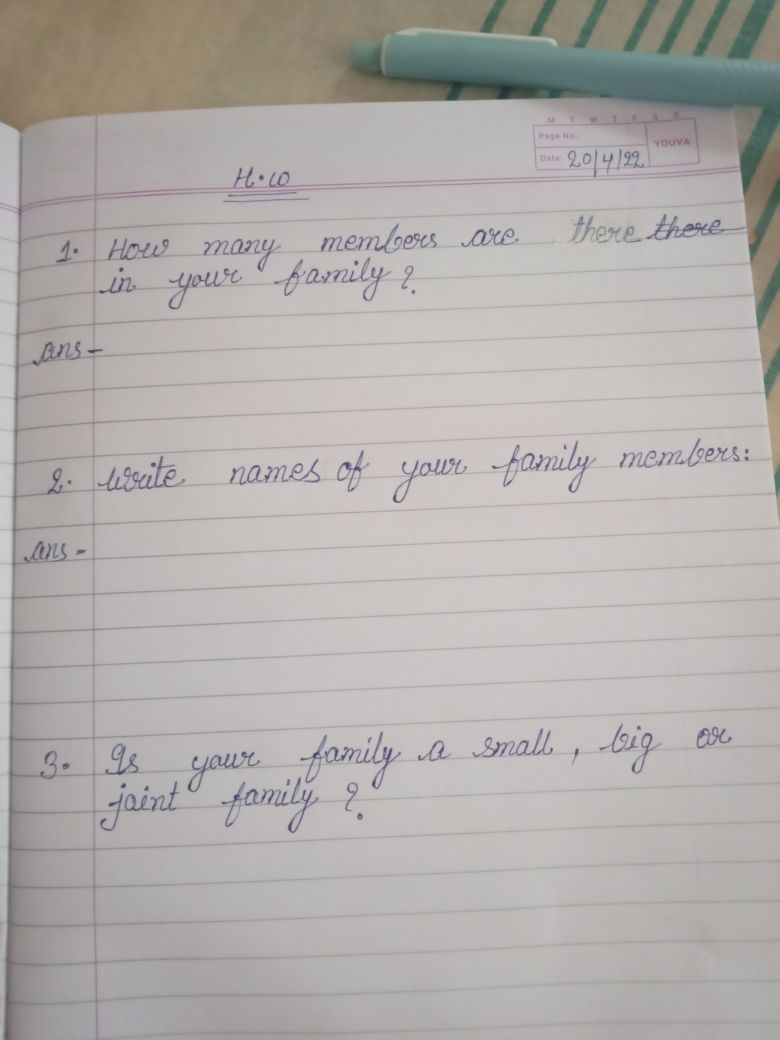 M T W T F S S
Page No.:
YOUVA
Date: 20/4/22
H.w
1. How many members are there there
in your family?
ans-
2. Write names of your family members:
ans-
3. Is your family a small, big or
joint family?